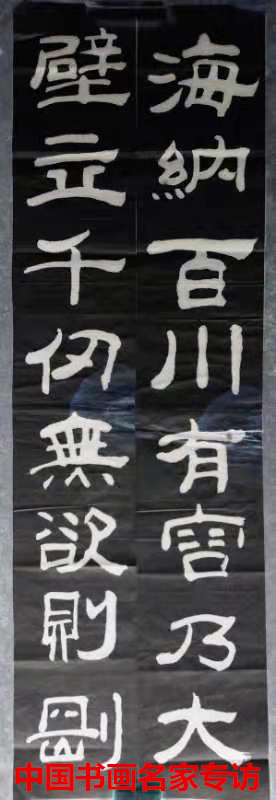 海納百川有容乃大
壁立千仞無欲則剛
中国书画名家专访